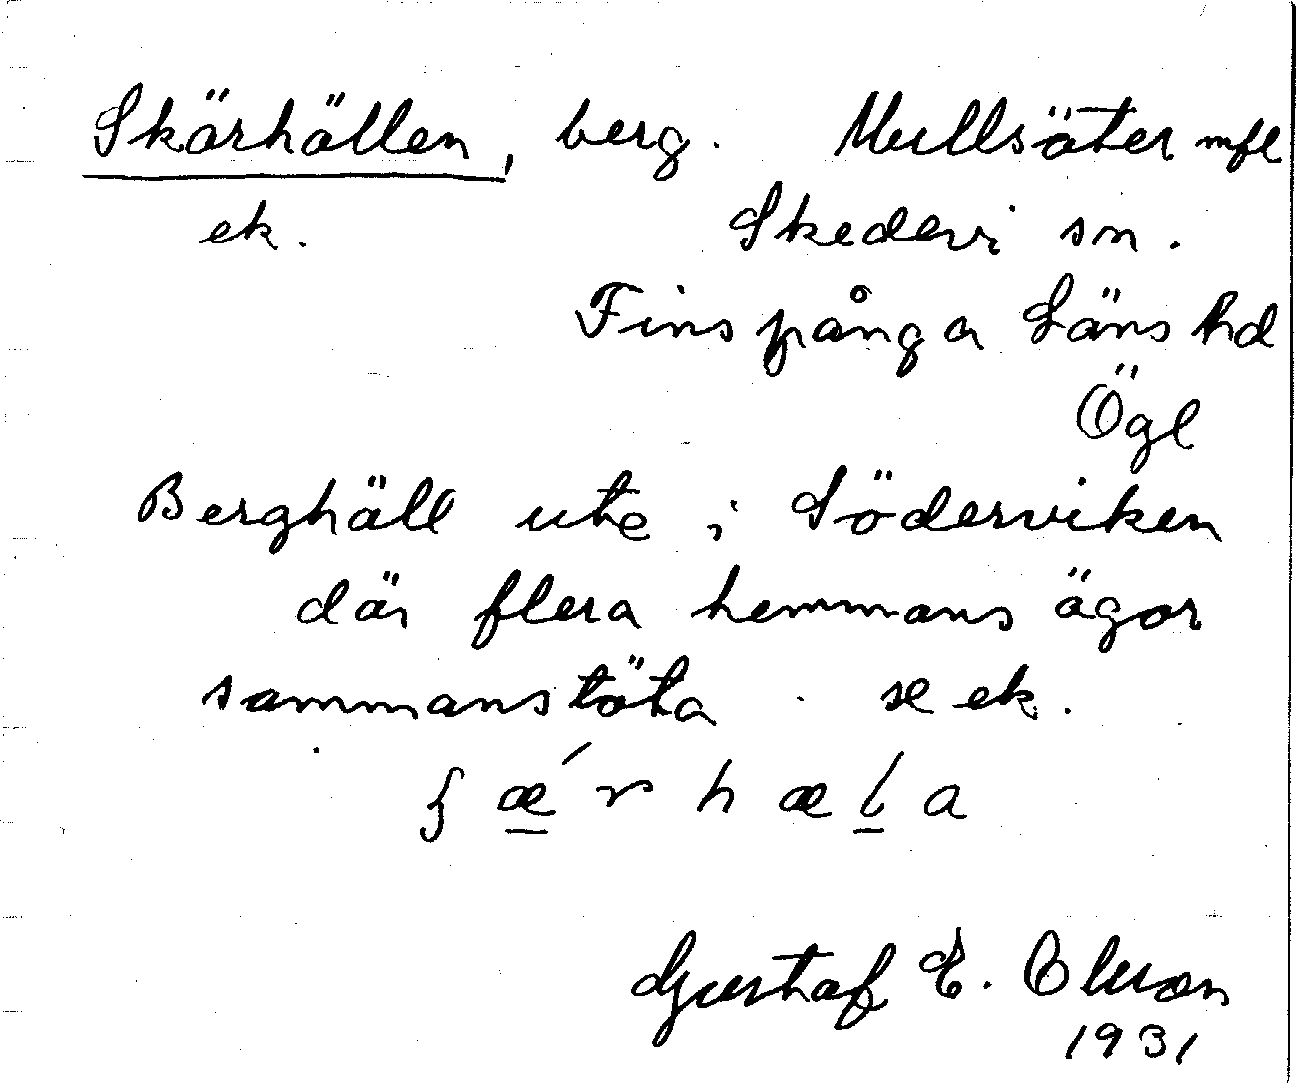 Skärhällen, berg. Mullsäter mfl
ek. Skedevi sn.
Finspånga Läns hd
Ögl
Berghäll ute i Söderviken
där flera hemmans ägor
sammanstöta. se ek.
ʃǽrhæla
Gustaf E. Olsson
1931